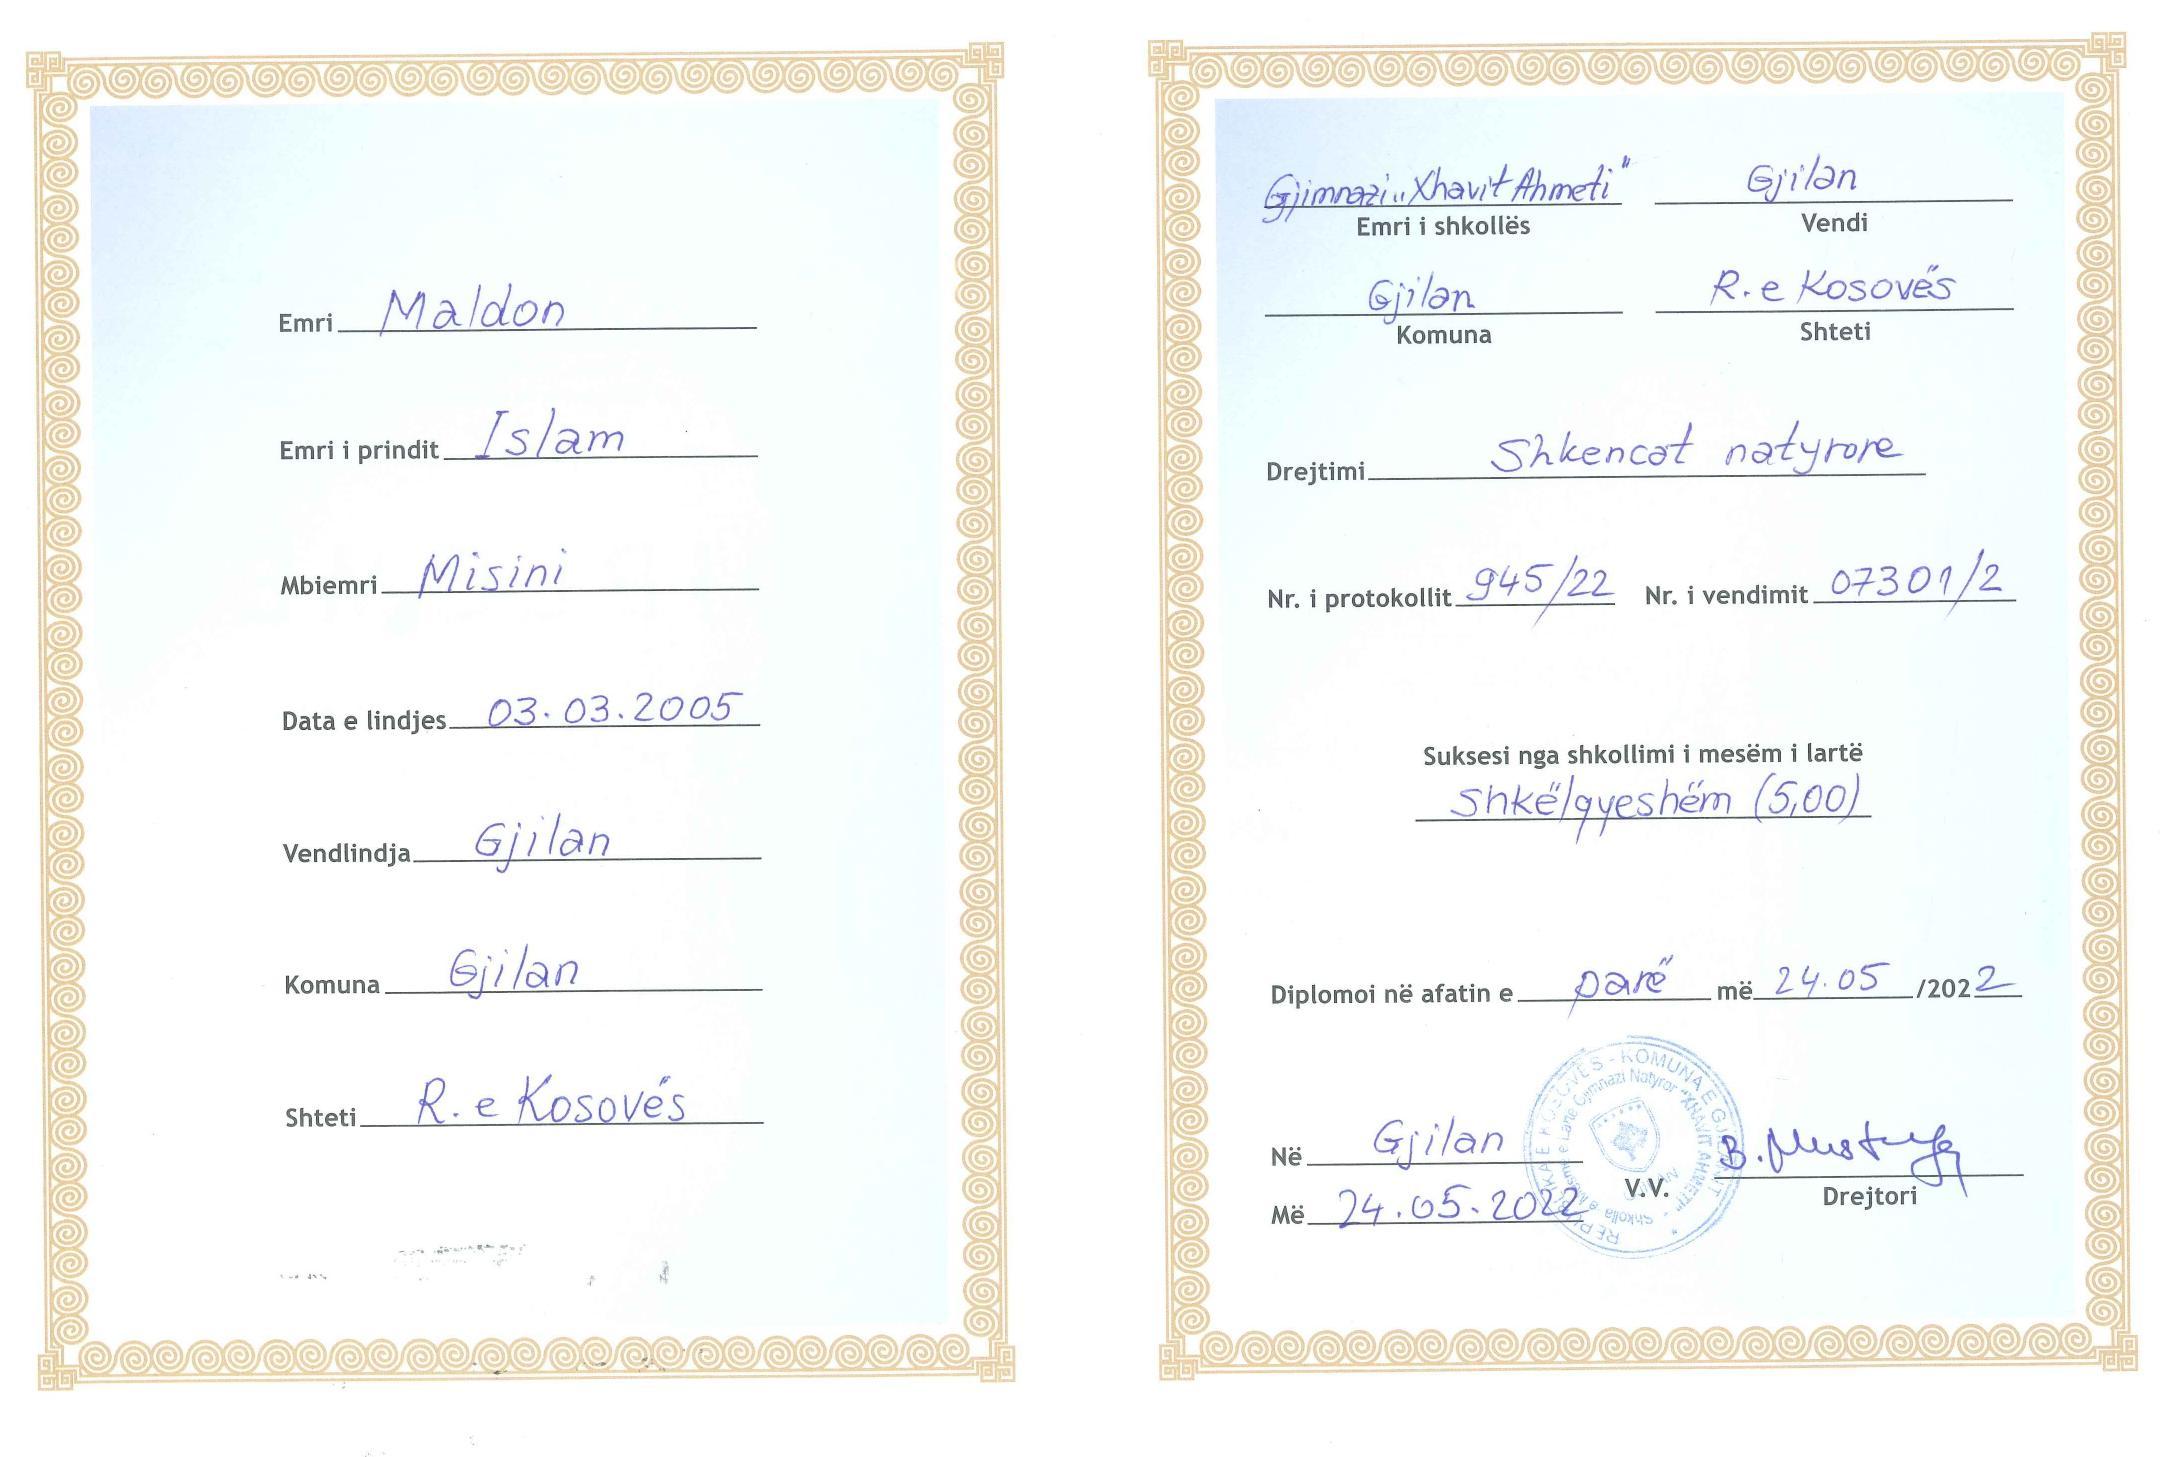 Emri Maldon
Emri i prindit Islam
Mbiemri Misini
Data e lindjes 03.03.2005
Vendlindja Gjilan
Komuna Gjilan
Shteti R. e Kosovës
Gjimnazi „Xhavit Ahmeti" Gjilan
Emri i shkollës Vendi
Gjilan R. e Kosovës
Komuna Shteti
Drejtimi Shkencat natyrore
Nr. i protokollit 945/22 Nr. i vendimit 07301/2
Suksesi nga shkollimi i mesëm i lartë
Shkëlqyeshëm (5,00)
Diplomoi në afatin e parë më 24.05 /2022
Në Gjilan
REPUBLIKA E KOSOVËS - KOMUNA E GJILANIT
Shkolla e Mesme e Lartë Gjimnazi Natyror "XHAVIT AHMETI" -
GJILAN
V.V.
B. Mustafa
Drejtori
Më 24.05.2022